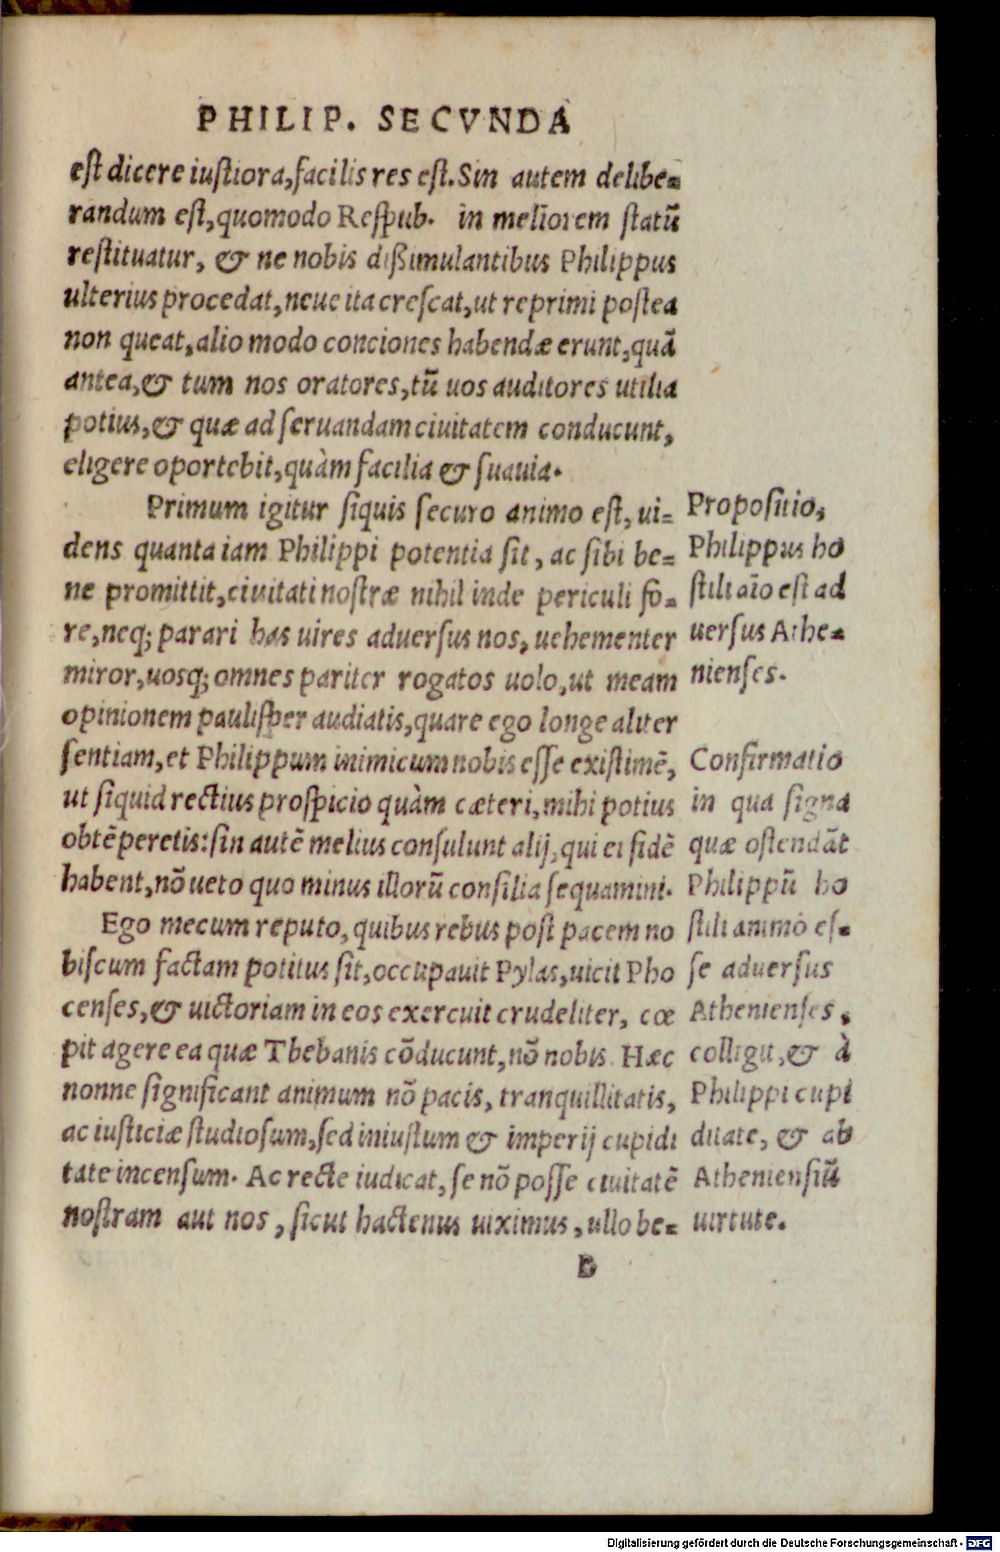 PHILIP. SECVNDA
est dicere iustiora, facilis res est. Sin autem delibe=
randum est, quomodo Respub. in meliorem statū
restituatur, & ne nobis dißimulantibus Philippus
ulterius procedat, neue ita crescat, ut reprimi postea
non queat, alio modo conciones habendæ erunt, quā
antea, & tum nos oratores, tū uos auditores utilia
potius, & quæ ad seruandam ciuitatem conducunt,
eligere oportebit, quàm facilia & suauia.
Primum igitur siquis securo animo est, ui=
dens quanta iam Philippi potentia sit, ac sibi be=
ne promittit, ciuitati nostræ nihil inde periculi fo=
re, neq; parari has uires aduersus nos, uehementer
miror, uosq; omnes pariter rogatos uolo, ut meam
opinionem paulisper audiatis, quare ego longe aliter
sentiam, et Philippum inimicum nobis esse existimē,
ut siquid rectius prospicio quàm cæteri, mihi potius
obtēperetis: sin autē melius consulunt alij, qui ei fidē
habent, nō ueto quo minus illorū consilia sequamini.
Ego mecum reputo, quibus rebus post pacem no
biscum factam potitus sit, occupauit Pylas, uicit Pho
censes, & uictoriam in eos exercuit crudeliter, cœ
pit agere ea quæ Thebanis cōducunt, nō nobis. Hæc
nonne significant animum nō pacis, tranquillitatis,
ac iusticiæ studiosum, sed iniustum & imperij cupidi
tate incensum. Ac recte iudicat, se nō posse ciuitatē
nostram aut nos, sicut hactenus uiximus, ullo be=
B
Propositio,
Philippus ho
stili aīo est ad
uersus Athe=
nienses.
Confirmatio
in qua signa
quæ ostendāt
Philippū ho
stili animo es=
se aduersus
Athenienses,
colligit, & à
Philippi cupi
ditate, & ab
Atheniensiū
uirtute.
Digitalisierung gefördert durch die Deutsche Forschungsgemeinschaft - DFG